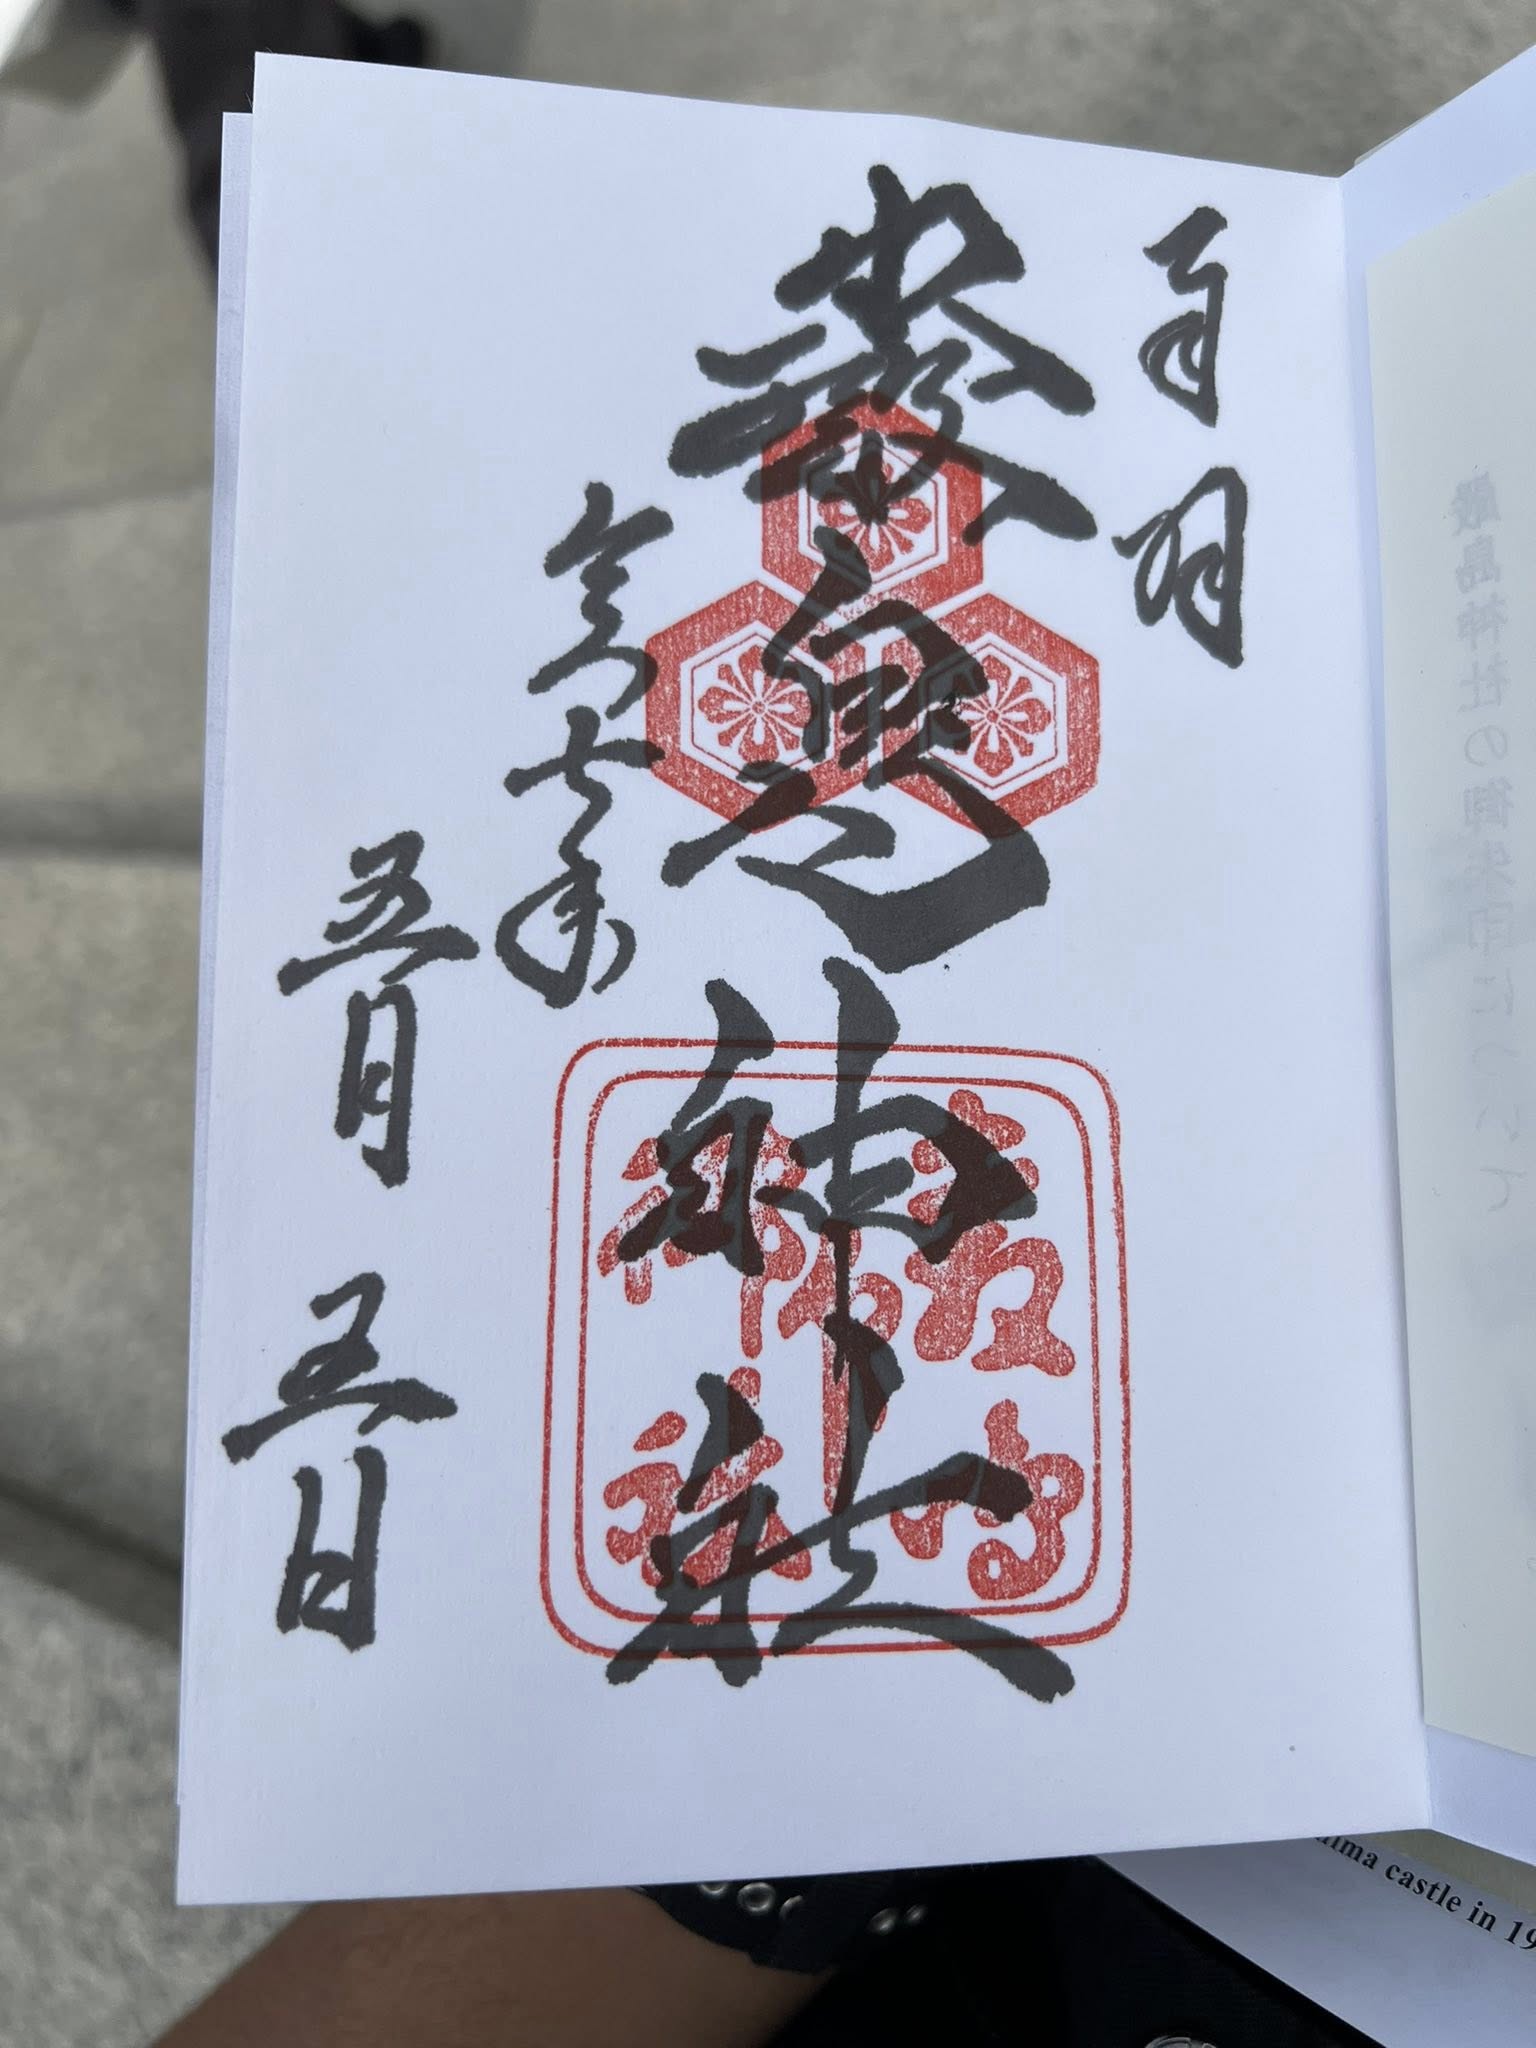 嚴島神社
令和七年
五月五日
嚴島
神社
厳島神社の御朱印について
hima castle in 19